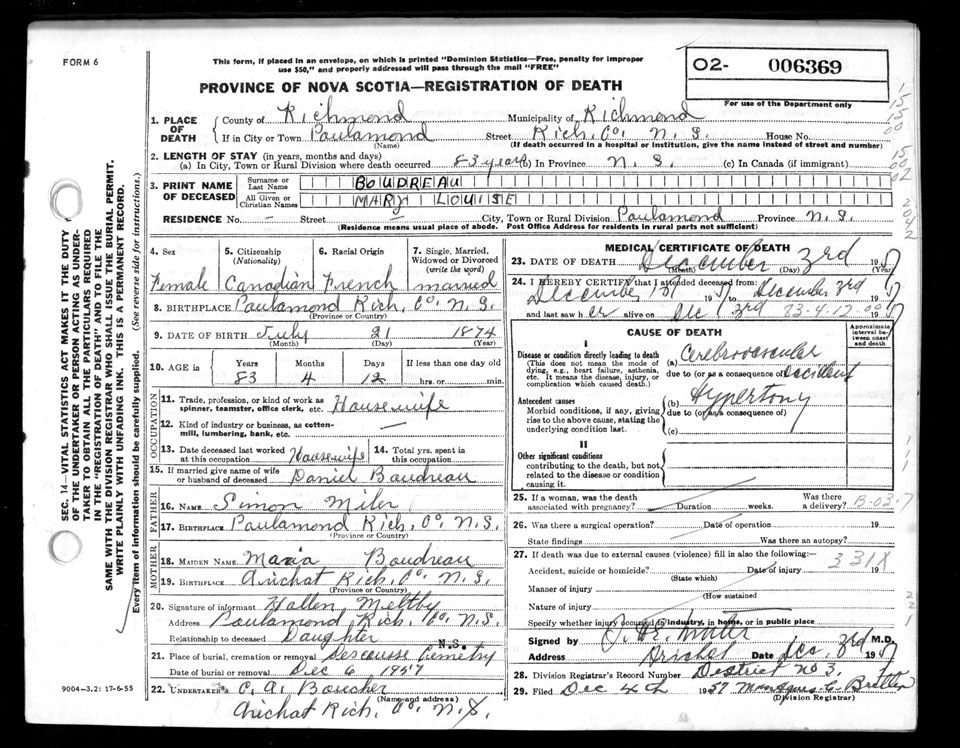 FORM 6
This form, if placed in an envelope, on which is printed "Dominion Statistics—Free, penalty for improper
use $50," and properly addressed will pass through the mail "FREE"
O2- 006369
For use of the Department only
PROVINCE OF NOVA SCOTIA—REGISTRATION OF DEATH
1. PLACE OF DEATH
County of Richmond Municipality of Richmond
If in City or Town Paulamond Street Rich. Co. N. S. House No.
(Name) (If death occurred in a hospital or institution, give the name instead of street and number)
2. LENGTH OF STAY (in years, months and days)
(a) In City, Town or Rural Division where death occurred 83 years (b) In Province N. S. (c) In Canada (if immigrant)
3. PRINT NAME OF DECEASED
Surname or Last Name BOUDREAU
All Given or Christian Names MARY LOUISE
RESIDENCE No. – Street – City, Town or Rural Division Paulamond Province N. S.
(Residence means usual place of abode. Post Office Address for residents in rural parts not sufficient)
4. Sex 5. Citizenship (Nationality) 6. Racial Origin 7. Single, Married, Widowed or Divorced (write the word)
Female Canadian French married
8. BIRTHPLACE Paulamond Rich. Co. N. S.
(Province or Country)
9. DATE OF BIRTH July 21 1874
(Month) (Day) (Year)
10. AGE in Years Months Days If less than one day old
83 4 12 hrs. or min.
OCCUPATION
11. Trade, profession, or kind of work as spinner, teamster, office clerk, etc. Housewife
12. Kind of industry or business, as cotton-mill, lumbering, bank, etc. —
13. Date deceased last worked at this occupation Housewife 14. Total yrs. spent in this occupation
15. If married give name of wife or husband of deceased Daniel Boudreau
FATHER
16. NAME Simon
17. BIRTHPLACE Paulamond Rich. Co. N. S.
(Province or Country)
MOTHER
18. MAIDEN NAME Maria Boudreau
19. BIRTHPLACE Arichat Rich. Co. N. S.
(Province or Country)
20. Signature of informant
Address Paulamond Rich. Co. N. S.
Relationship to deceased Daughter
21. Place of burial, cremation or removal Descousse Cemetry N.S.
Date of burial or removal Dec 6 1957
22. UNDERTAKER C. A. Boucher
(Name and address)
Arichat Rich. Co. N. S.
9004—3.2: 17-6-55
MEDICAL CERTIFICATE OF DEATH
23. DATE OF DEATH December 3rd 1957
(Month) (Day) (Year)
24. I HEREBY CERTIFY that I attended deceased from:
December 1st 1957 to December 3rd
and last saw her alive on Dec 3rd 83-4-12-00 1957
CAUSE OF DEATH
Approximate interval between onset and death
I
Disease or condition directly leading to death
(This does not mean the mode of dying, e.g., heart failure, asthenia, etc. It means the disease, injury, or complication which caused death.)
(a) Cerebrovascular
due to (or as a consequence of) accident
Antecedent causes
Morbid conditions, if any, giving rise to the above cause, stating the underlying condition last.
(b) Hypertony
due to (or as a consequence of)
(c)
II
Other significant conditions
contributing to the death, but not related to the disease or condition causing it.
25. If a woman, was the death associated with pregnancy? Duration weeks. Was there a delivery? B-03-7
26. Was there a surgical operation? Date of operation 19
State findings Was there an autopsy?
27. If death was due to external causes (violence) fill in also the following:-
331X
Accident, suicide or homicide? Date of injury 19
(State which)
Manner of injury
(How sustained
Nature of injury
Specify whether injury occurred in industry, in home, or in public place
Signed by M.D.
Address Arichat Date Dec. 3rd 1957
28. Division Registrar's Record Number District No 3.
29. Filed Dec 4th 1957
(Division Registrar)
SEC. 14—VITAL STATISTICS ACT MAKES IT THE DUTY
OF THE UNDERTAKER OR PERSON ACTING AS UNDER-
TAKER TO OBTAIN ALL THE PARTICULARS REQUIRED
IN THE "REGISTRATION OF DEATH" AND TO FILE THE
SAME WITH THE DIVISION REGISTRAR WHO SHALL ISSUE THE BURIAL PERMIT.
WRITE PLAINLY WITH UNFADING INK. THIS IS A PERMANENT RECORD.
Every item of information should be carefully supplied. (See reverse side for instructions.)